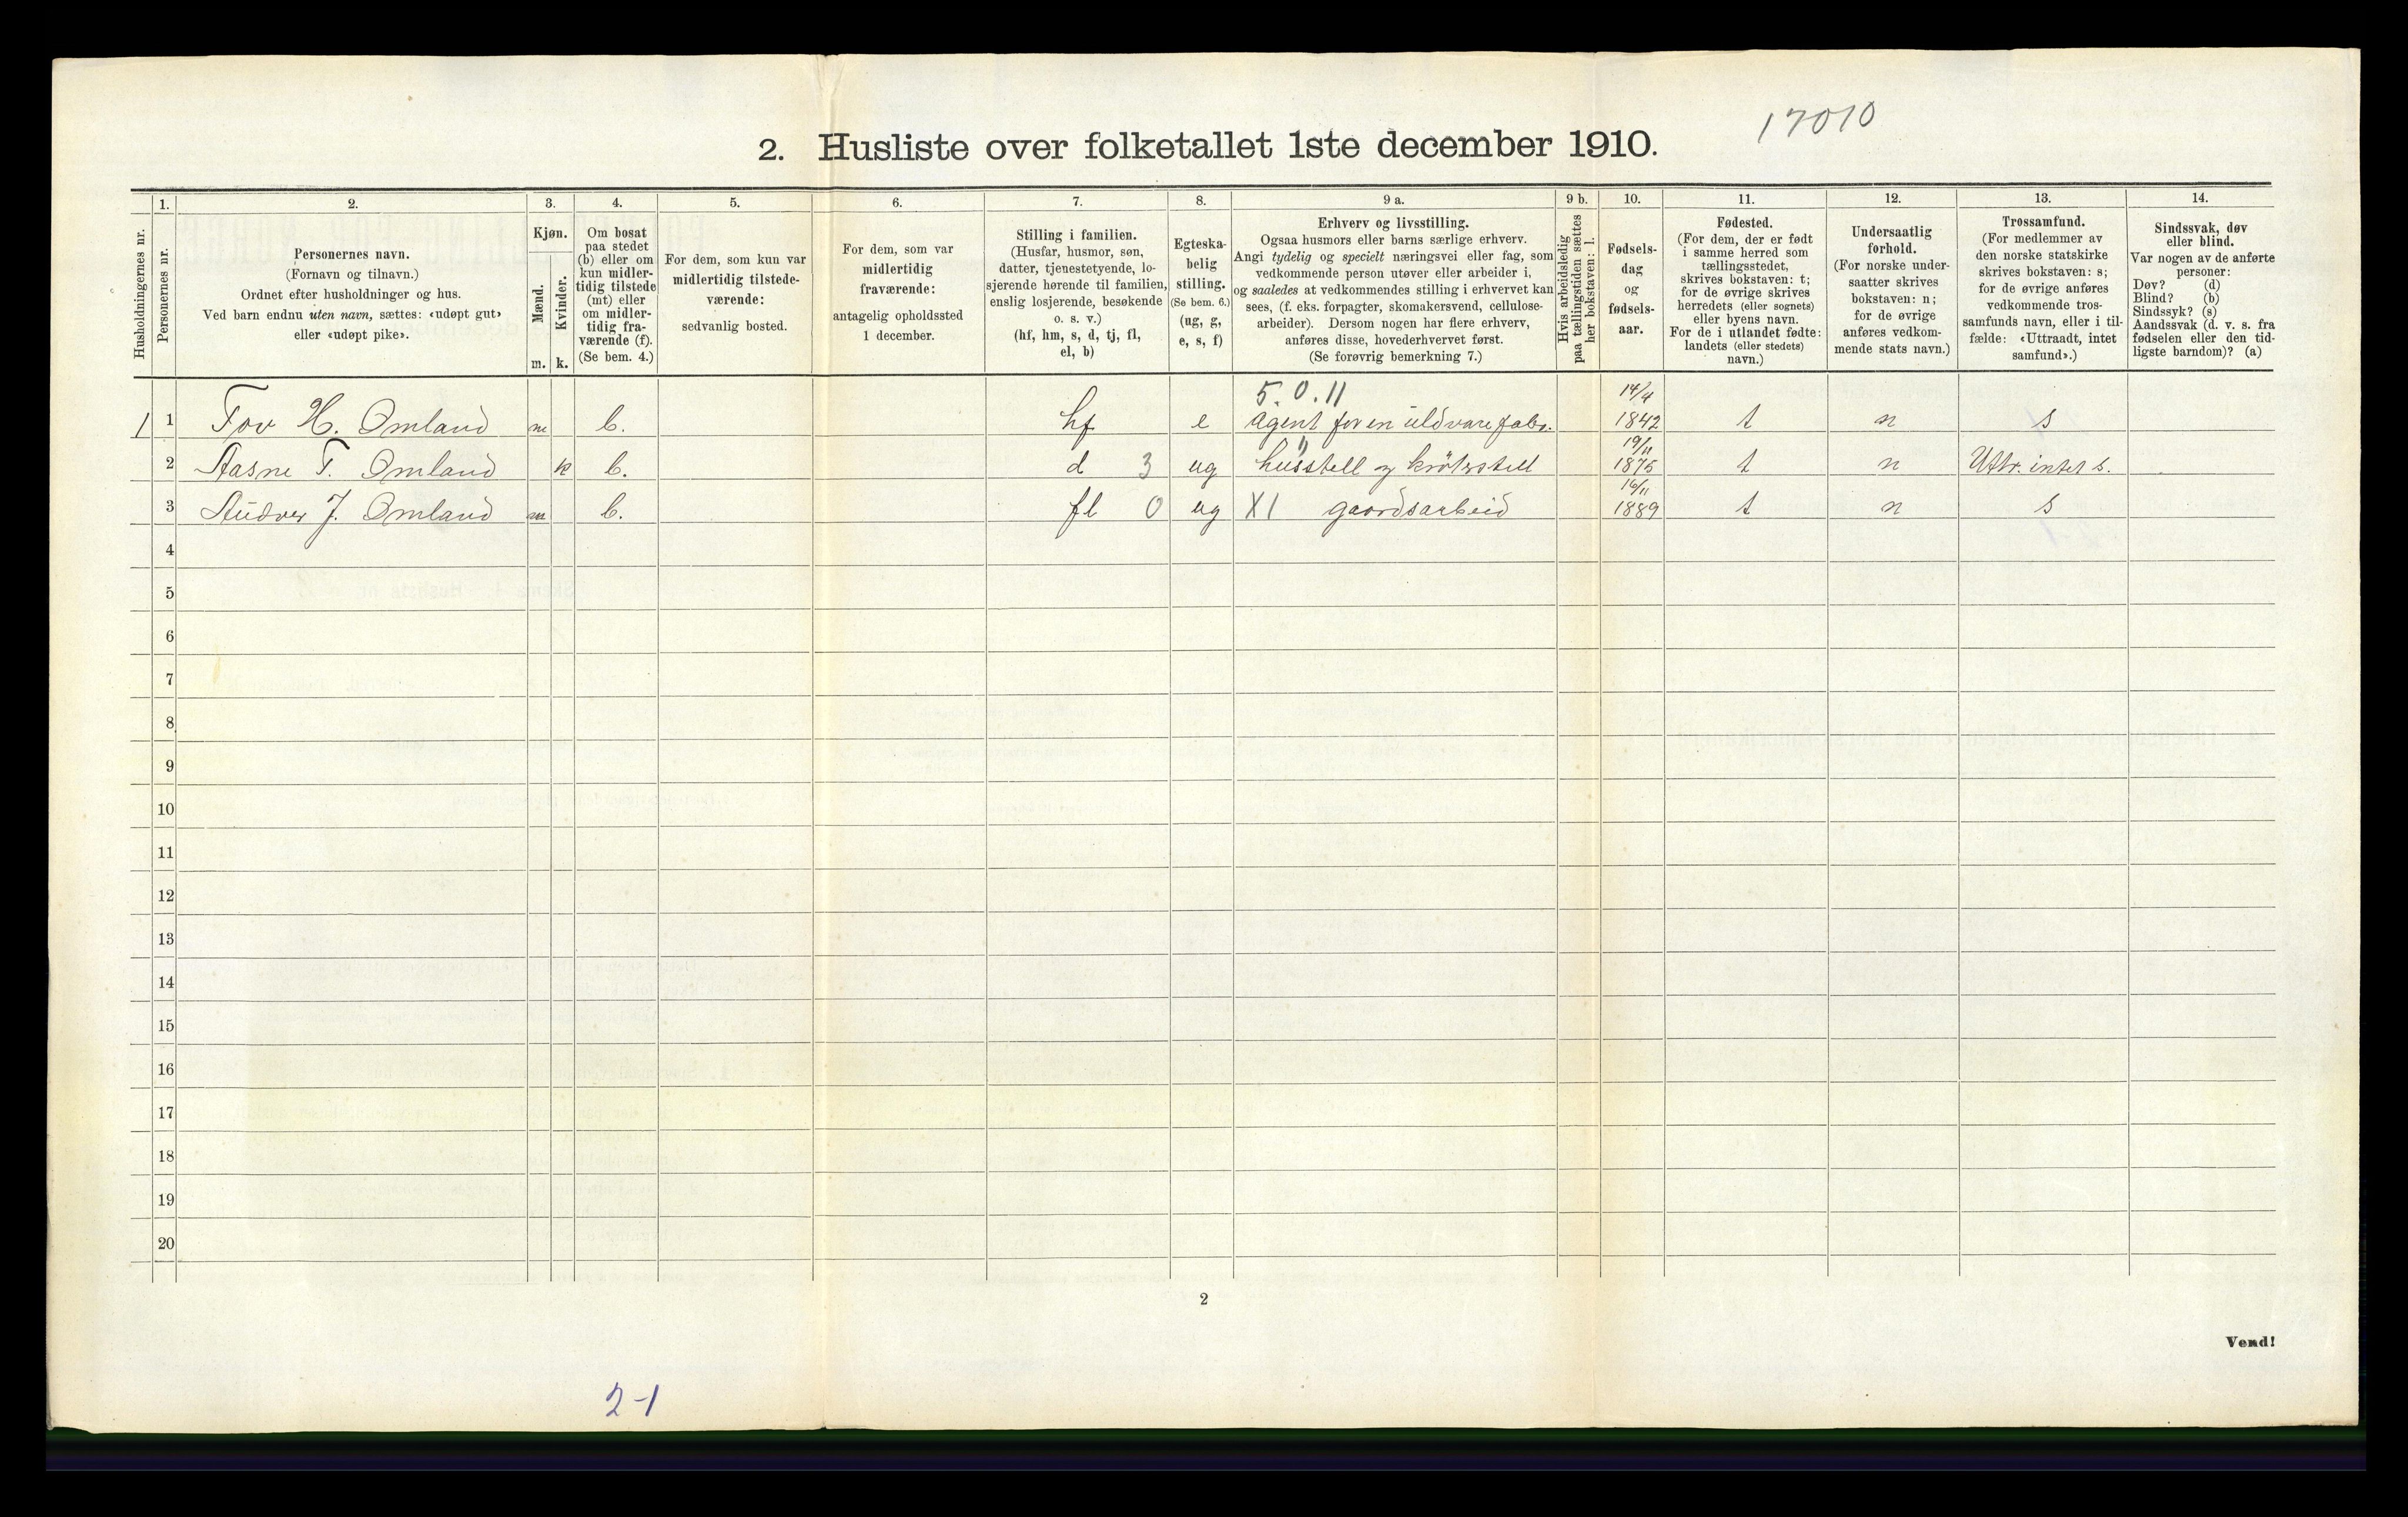 17010
2. Husliste over folketallet 1ste december 1910.
Husholdningernes nr.
1.
Personernes nr.
2.
Personernes navn.
(Fornavn og tilnavn.)
Ordnet efter husholdninger og hus.
Ved barn endnu uten navn, sættes: «udøpt gut»
eller «udøpt pike».
3.
Kjøn.
Mænd.
Kvinder.
m. k.
4.
Om bosat
paa stedet
(b) eller om
kun midler-
tidig tilstede
(mt) eller
om midler-
tidig fra-
værende (f).
(Se bem. 4.)
5.
For dem, som kun var
midlertidig tilstede-
værende:
sedvanlig bosted.
6.
For dem, som var
midlertidig
fraværende:
antagelig opholdssted
1 december.
7.
Stilling i familien.
(Husfar, husmor, søn,
datter, tjenestetyende, lo-
sjerende hørende til familien,
enslig losjerende, besøkende
o. s. v.)
(hf, hm, s, d, tj, fl,
el, b)
8.
Egteska-
belig
stilling.
(Se bem. 6.)
(ug, g,
e, s, f)
9 a.
Erhverv og livsstilling.
Ogsaa husmors eller barns særlige erhverv.
Angi tydelig og specielt næringsvei eller fag, som
vedkommende person utøver eller arbeider i,
og saaledes at vedkommendes stilling i erhvervet kan
sees, (f. eks. forpagter, skomakersvend, cellulose-
arbeider). Dersom nogen har flere erhverv,
anføres disse, hovederhvervet først.
(Se forøvrig bemerkning 7.)
9 b.
Hvis arbeidsledig
paa tællingstiden sættes
her bokstaven: l.
10.
Fødsels-
dag
og
fødsels-
aar.
11.
Fødested.
(For dem, der er født
i samme herred som
tællingsstedet,
skrives bokstaven: t;
for de øvrige skrives
herredets (eller sognets)
eller byens navn.
For de i utlandet fødte:
landets (eller stedets)
navn.)
12.
Undersaatlig
forhold.
(For norske under-
saatter skrives
bokstaven: n;
for de øvrige
anføres vedkom-
mende stats navn.)
13.
Trossamfund.
(For medlemmer av
den norske statskirke
skrives bokstaven: s;
for de øvrige anføres
vedkommende tros-
samfunds navn, eller i til-
fælde: «Uttraadt, intet
samfund».)
14.
Sindssvak, døv
eller blind.
Var nogen av de anførte
personer:
Døv? (d)
Blind? (b)
Sindssyk? (s)
Aandssvak (d. v. s. fra
fødselen eller den tid-
ligste barndom)? (a)
5.0.11 14/4
1 1 Tov H. Omland m b. hf e agent for en uldvarefabr. 1842 t n s
" 19/11
2 Aasne T. Omland k b. d 3 ug husstell og krøtrstell 1875 t n Uttr. intet s.
16/11
3 Audver J. Omland m b. fl 0 ug X1 gaardsarbeid 1889 t n s
4
5
6
7
8
9
10
11
12
13
14
15
16
17
18
19
20
2
Vend!
2-1